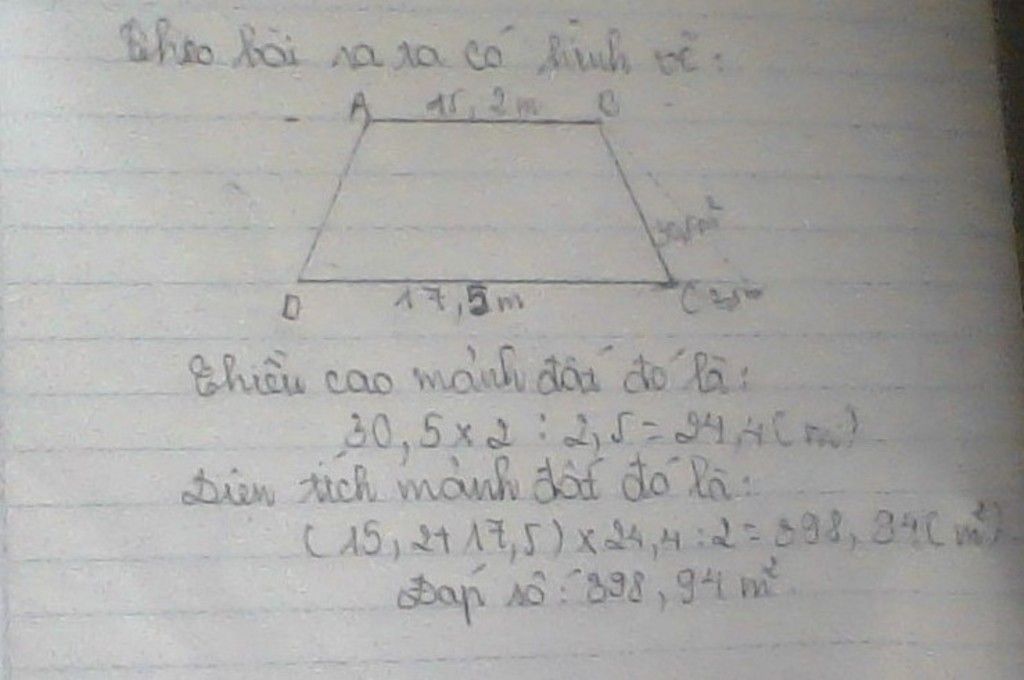 Theo bài ra ta có hình vẽ:
A 15,2m B
30,5m²
D 17,5m C 2,5m
Chiều cao mảnh đất đó là:
30,5 x 2 : 2,5 = 24,4 (m)
Diện tích mảnh đất đó là:
(15,2 + 17,5) x 24,4 : 2 = 398,94 (m²).
Đáp số: 398,94 m².